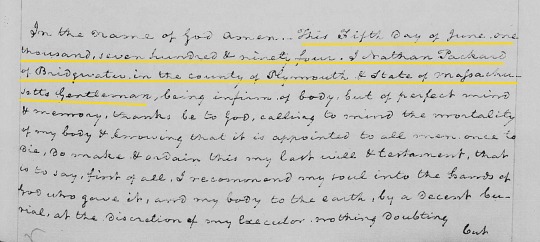 In the name of God Amen. This Fifth Day of June, one
thousand, seven hundred & ninety four. I Nathan Packard
of Bridgwater, in the county of Plymouth & State of Massachu-
setts Gentleman, being infirm of body, but of perfect mind
& memory, thanks be to God, calling to mind the mortality
of my body & knowing that it is appointed to all men once to
Die, Do make & ordain this my last will & testament, that
is to say, first of all, I recommend my soul into the hands of
God who gave it, and my body to the earth, by a Decent bu-
rial, at the Discretion of my Executor. nothing Doubting
but